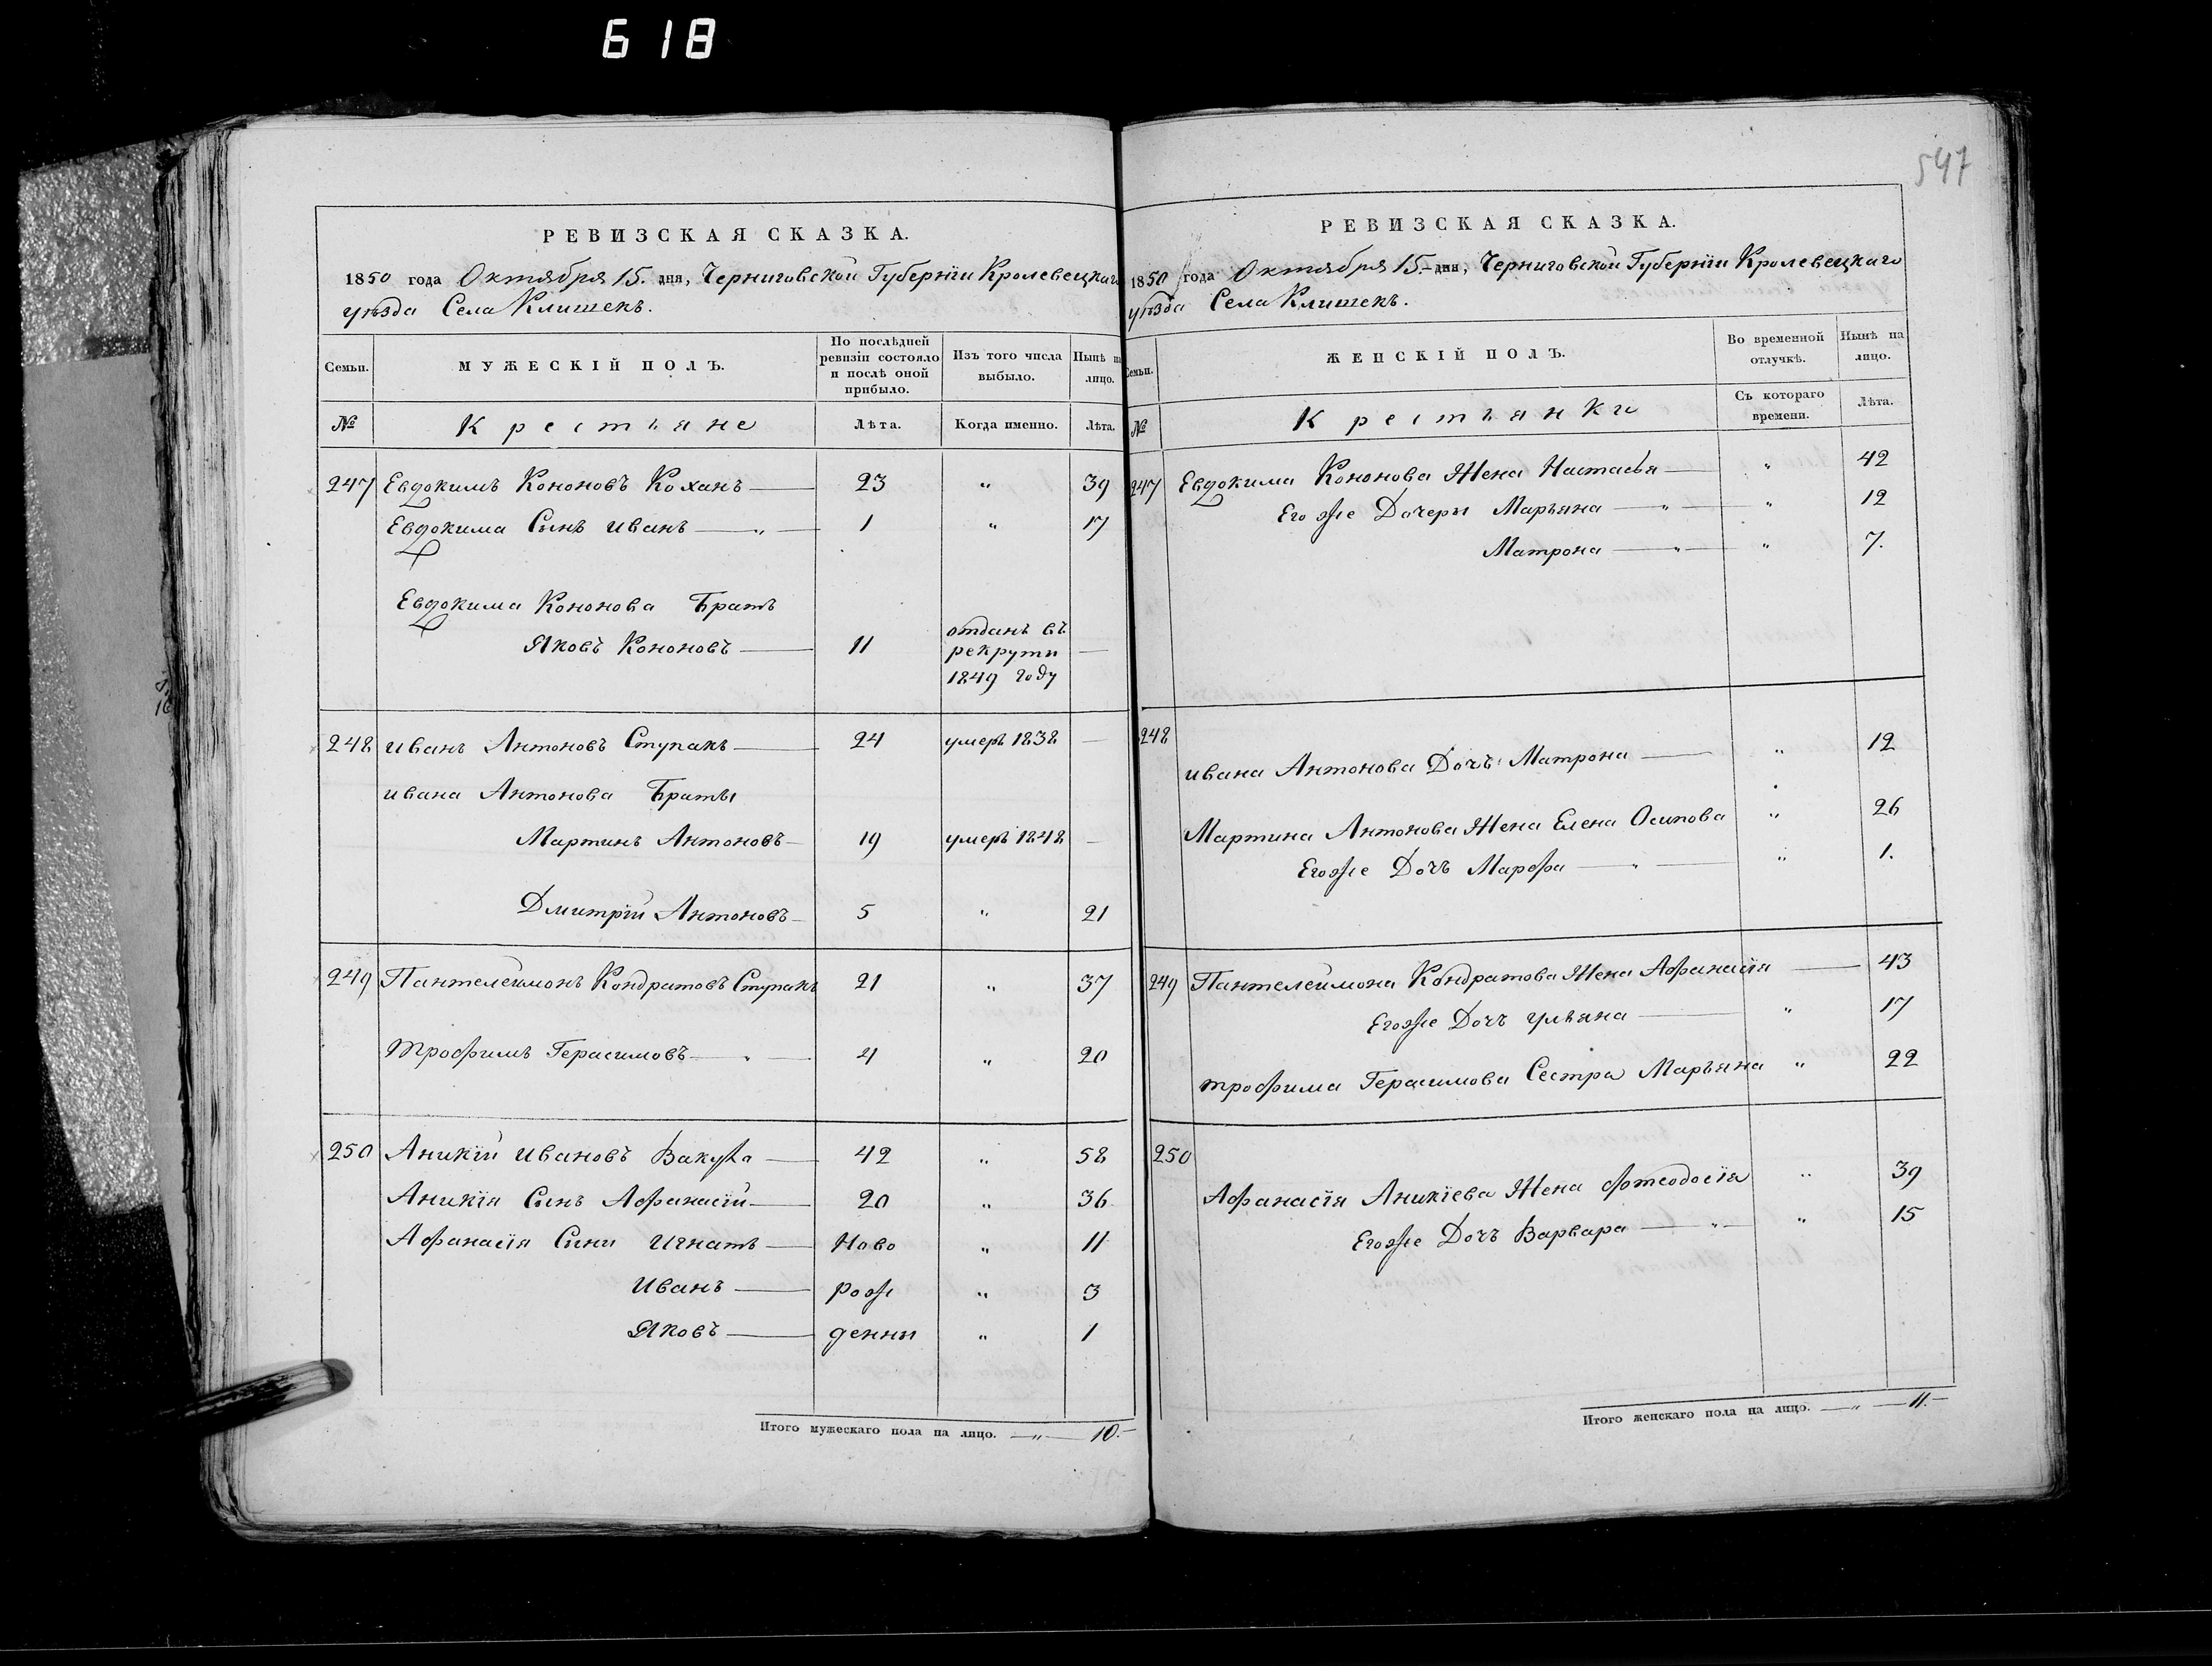 618
547
РЕВИЗСКАЯ СКАЗКА.
1850 года Октября 15. дня, Черниговской Губернїи Кролевецкаго
уѣзда Села Клишекъ.
Семьи. МУЖЕСКІЙ ПОЛЪ. По послѣдней ревизіи состояло и послѣ оной прибыло. Изъ того числа выбыло. Нынѣ на лицо.
№ Крестьяне Лѣта. Когда именно. Лѣта.
247 Евдокимъ Кононовъ Коханъ — 23 " 39
Евдокима Сынъ Иванъ — " — 1 " 17
Евдокима Кононова Братъ
Яковъ Кононовъ — 11 отданъ въ рекруты 1849 году —
248 Иванъ Антоновъ Ступакъ — 24 умеръ 1838 —
Ивана Антонова Браты
Мартинъ Антоновъ — 19 умеръ 1848 —
Дмитрїй Антоновъ — 5 " 21
249 Пантелеймонъ Кондратовъ Ступакъ 21 " 37
Трофимъ Герасимовъ — " — 4 " 20
250 Аникїй Ивановъ — 42 " 58
Аникїя Сынъ Афанасїй — 20 " 36
Афанасїя Сыни Игнатъ — Ново " 11
Иванъ — рож " 3
Яковъ — денны " 1
Итого мужескаго пола на лицо. — " — 10. —
РЕВИЗСКАЯ СКАЗКА.
1850 года Октября 15. — дня, Черниговской Губернїи Кролевецкаго
уѣзда Села Клишекъ.
Семьи. ЖЕНСКІЙ ПОЛЪ. Во временной отлучкѣ. Нынѣ на лицо.
№ Крестьянки Съ котораго времени. Лѣта.
247 Евдокима Кононова Жена Настасья — " 42
Его же Дочеры Марьяна — " — " 12
Матрона — " — " 7.
248
Ивана Антонова Дочъ Матрона — " 12
Мартина Антонова Жена Елена Осипова " 26
Егоже Дочъ Марфа — " — " 1.
249 Пантелеймона Кондратова Жена Афанасїя — 43
Егоже Дочъ Ульяна — " 17
Трофима Герасимова Сестра Марьяна " 22
250
Афанасїя Аникїева Жена Феодосїя " 39
Егоже Дочъ Варвара — " — " 15
Итого женскаго пола на лицо. — " — 11. —